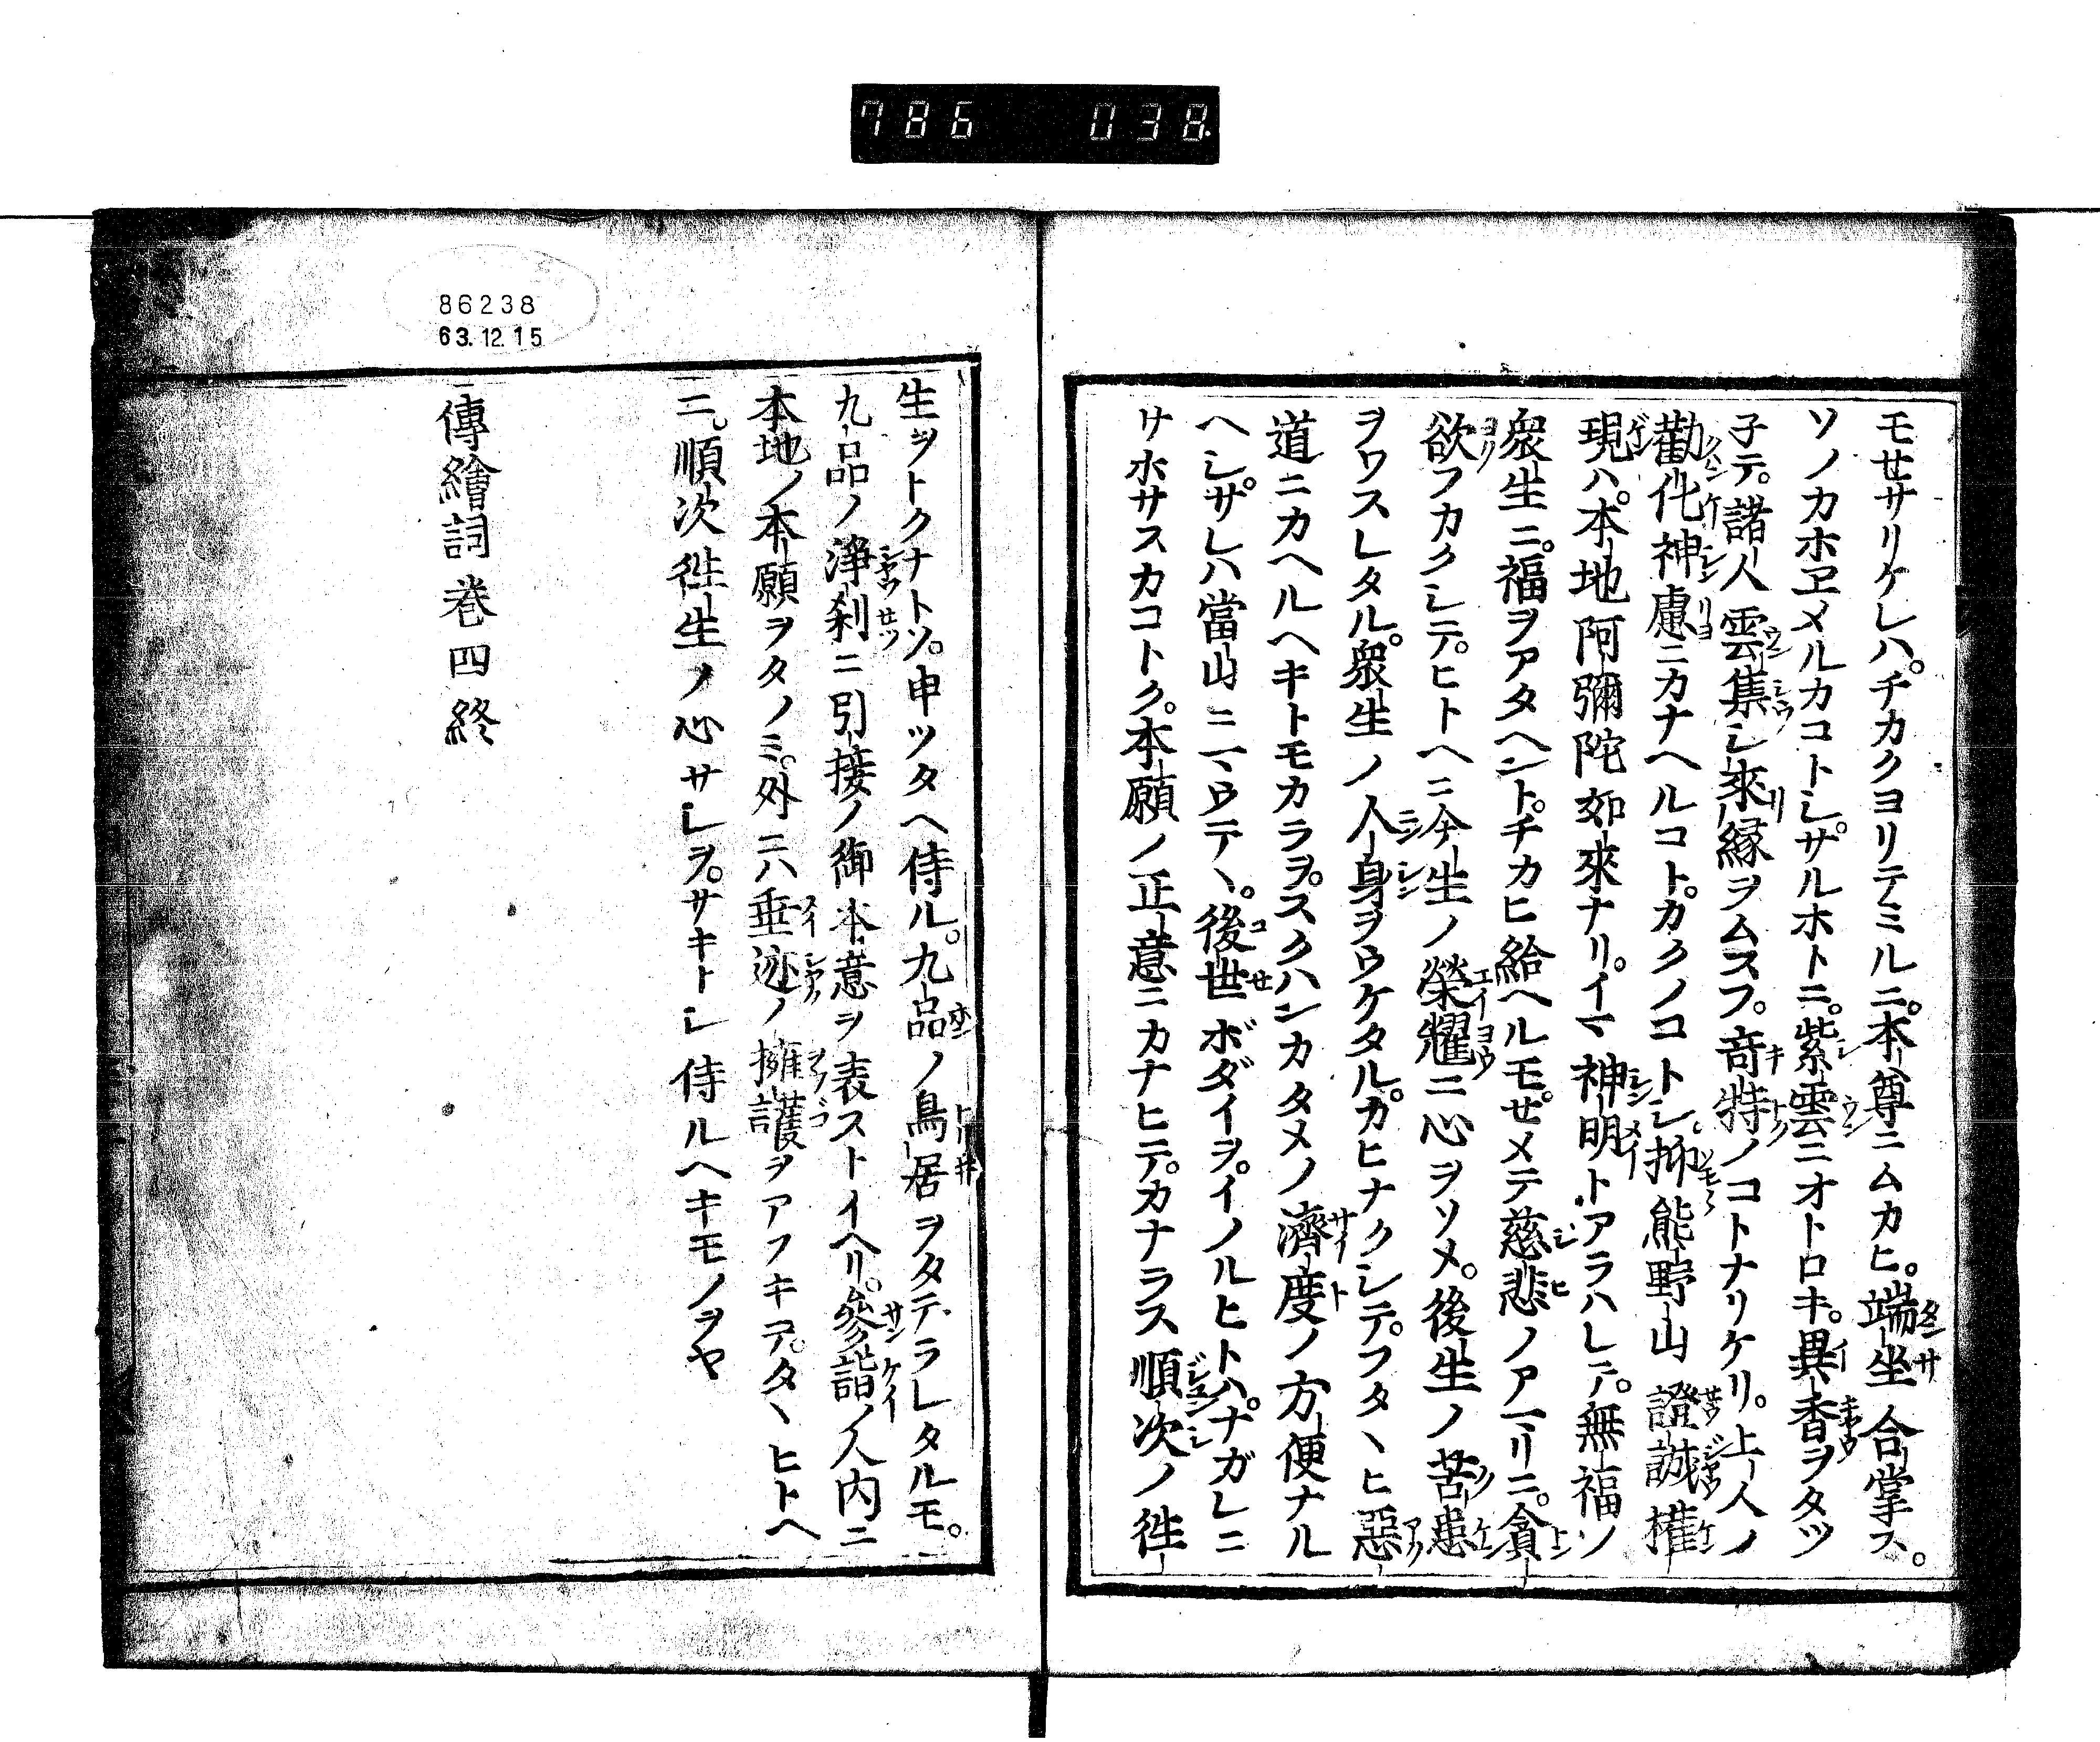 786 038.
モせサリケレハ。チカクヨリテミルニ。本尊ニムカヒ。端坐合掌ス。
ソノカホヱメルカコトシ。サルホトニ。紫雲ニオトロキ。異香ヲタツ
子テ。諸人雲集シ來縁ヲムスフ。竒特ノコトナリケリ。上人ノ
勸化神慮ニカナヘルコト。カクノコトシ。抑熊野山證誠權
現ハ。本地阿彌陀如來ナリ。イマ神明トアラハレテ。無福ソ
衆生ニ。福ヲアタヘント。チカヒ給ヘルモ。せメテ慈悲ノアマリニ。貪
欲フカクシテ。ヒトヘニ今生ノ榮耀ニ心ヲソメ。後生ノ苦患
ヲワスレタル。衆生ノ人身ヲウケタル。カヒナクシテ。フタヽヒ惡
道ニカヘルヘキトモカラヲ。スクハンカタメノ濟度ノ方便ナル
ヘシ。サレハ當山ニマウテヽ。後世ボダイヲ。イノルヒトハ。ナガレニ
サホサスカコトク。本願ノ正意ニカナヒテ。カナラス順次ノ徃
生ヲトクナトソ。申ツタヘ侍ル。九品ノ鳥居ヲタテラレタルモ。
九品ノ淨刹ニ引接ノ御本意ヲ表ストイヘリ。參詣ノ人内ニ
本地ノ本願ヲタノミ。外ニハ垂迹ノ擁護ヲアフキテ。タヽヒトヘ
ニ。順次徃生ノ心サシヲ。サキトシ侍ルヘキモノヲヤ
傳繪詞巻四終
86238
63.12.15